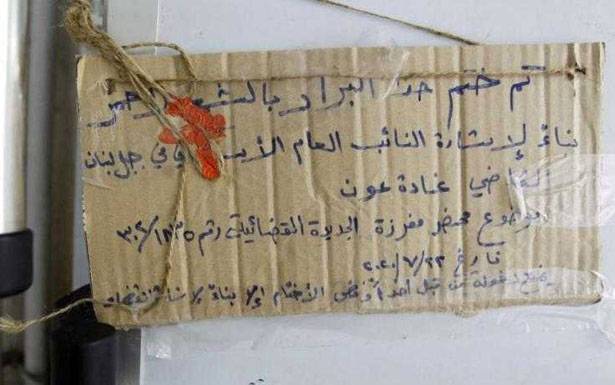 تم ختم هذا البراد بالشمع الاحمر
بناءً لإشارة النائب العام الا في جبل لبنان
القاضي غادة عون
بموضوع محضر مفرزة الجديدة القضائية رقم ٣٠٢/١٨٣٥
تاريخ ٢٠٢٠/٧/٢٢
يمنع دخوله من قبل احد أو فض الأختام إلا بناءً لإشارة القضاء